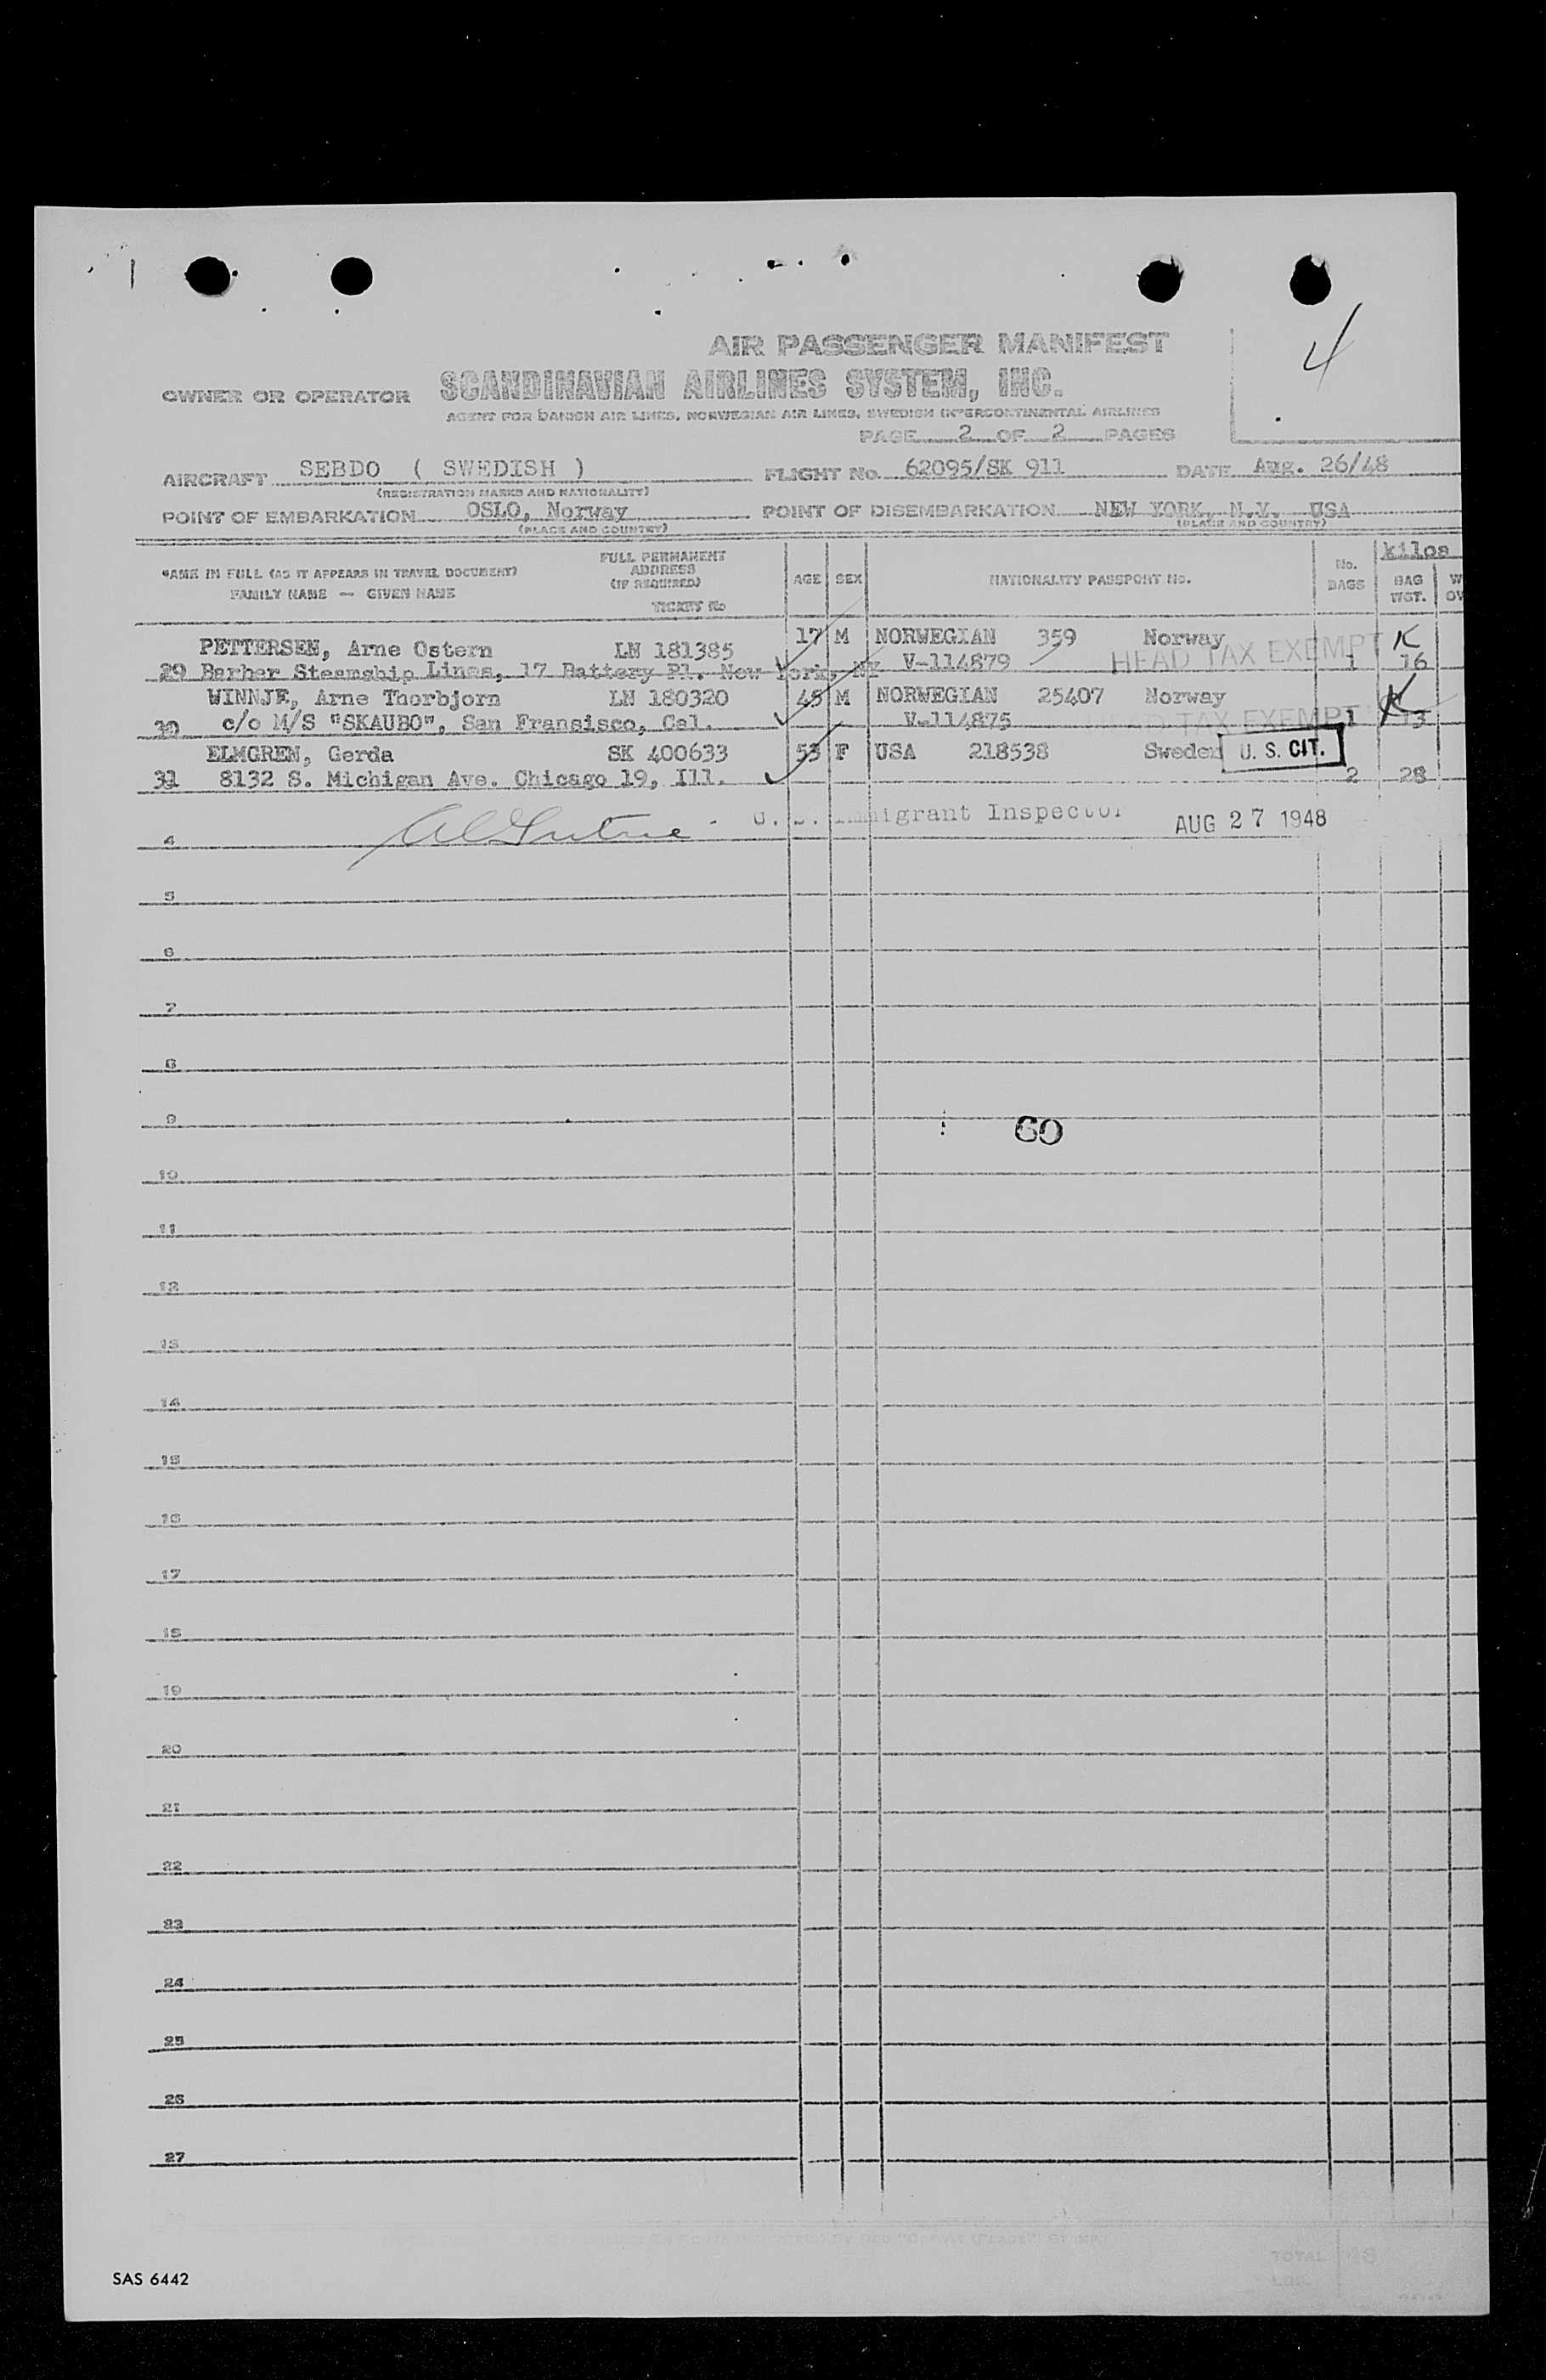 4
AIR PASSENGER MANIFEST
OWNER OR OPERATOR SCANDINAVIAN AIRLINES SYSTEM, INC.
AGENT FOR DANISH AIR LINES, NORWEGIAN AIR LINES, SWEDISH INTERCONTINENTAL AIRLINES
PAGE 2 OF 2 PAGES
AIRCRAFT SEBDO ( SWEDISH ) FLIGHT No. 62095/SK 911 DATE Aug. 26/48
(REGISTRATION MARKS AND NATIONALITY)
POINT OF EMBARKATION OSLO, Norway POINT OF DISEMBARKATION NEW YORK, N.Y. USA
(PLACE AND COUNTRY) (PLACE AND COUNTRY)
NAME IN FULL (AS IT APPEARS IN TRAVEL DOCUMENT) FAMILY NAME — GIVEN NAME
FULL PERMANENT ADDRESS (IF REQUIRED) TICKET No
AGE SEX NATIONALITY PASSPORT No. No. BAGS kilos BAG WGT. W OV
PETTERSEN, Arne Ostern LN 181385 17 M NORWEGIAN 359 Norway K
29 Barber Steamship Lines, 17 Battery Pl. New York, NY V-114879 HEAD TAX EXEMPT 1 16
WINNJE, Arne Thorbjorn LN 180320 45 M NORWEGIAN 25407 Norway K
30 c/o M/S "SKAUBO", San Fransisco, Cal. V-114875 HEAD TAX EXEMPT 1 13
ELMGREN, Gerda SK 400633 53 F USA 218538 Sweden U. S. CIT.
31 8132 S. Michigan Ave. Chicago 19, Ill. 2 28
U. S. Immigrant Inspector AUG 27 1948
4
5
6
7
8
9
60
10
11
12
13
14
15
16
17
18
19
20
21
22
23
24
25
26
27
TOTAL
SAS 6442